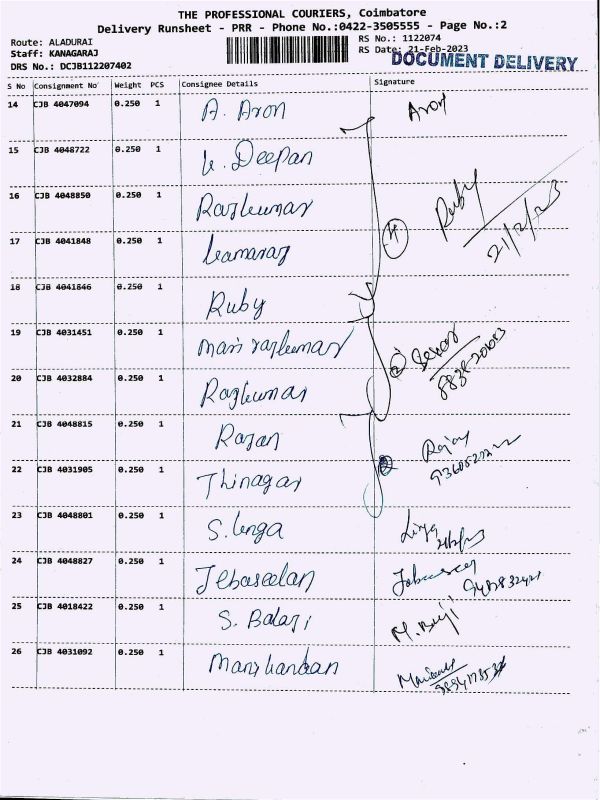 THE PROFESSIONAL COURIERS, Coimbatore
Delivery Runsheet - PRR - Phone No.:0422-3505555 - Page No.:2
Route: ALADURAI RS No.: 1122074
Staff: KANAGARAJ RS Date: 21-Feb-2023
DOCUMENT DELIVERY
DRS No.: DCJB112207402
S No Consignment No Weight PCS Consignee Details Signature
14 CJB 4047094 0.250 1 A. Aron Aron
15 CJB 4048722 0.250 1 Deepan
16 CJB 4048850 0.250 1 Rajkumar Ruby
21/2/23
17 CJB 4041848 0.250 1 kamaraj 4
18 CJB 4041846 0.250 1 Ruby
19 CJB 4031451 0.250 1 mari rajkumar
20 CJB 4032884 0.250 1 Rajkumar
21 CJB 4048815 0.250 1 Rajan
22 CJB 4031905 0.250 1 Thinagar
23 CJB 4048801 0.250 1 S. Linga Linga
24 CJB 4048827 0.250 1 Jebaseelan
25 CJB 4018422 0.250 1 S. Balaji
26 CJB 4031092 0.250 1 Manikandan